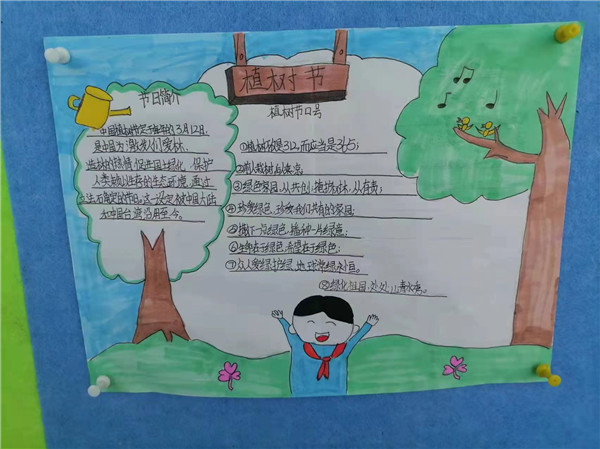 植树节
节日简介
中国植树节定于每年的3月12日,
是中国为激发人们爱林、
造林的热情,促进国土绿化,保护
人类赖以生存的生态环境,通过
立法确定的节日。这一
沿用至今。
植树节口号
①植树不仅是312,而应当是365;
②前人栽树后人乘凉。
③绿色家园,从我们
④珍爱绿色,珍爱我们共有的家园
⑤撒下一片绿色,播种一片绿意;
⑥生命在于绿色,希望在于绿色;
⑦人人爱绿护绿,地球常绿
⑧绿化祖国,处处山青水秀。